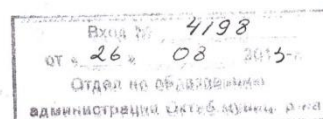 Вход № 4198
от « 26 » 08 2015 г.
Отдел по образованию
администрации Октяб.муниц. р-на